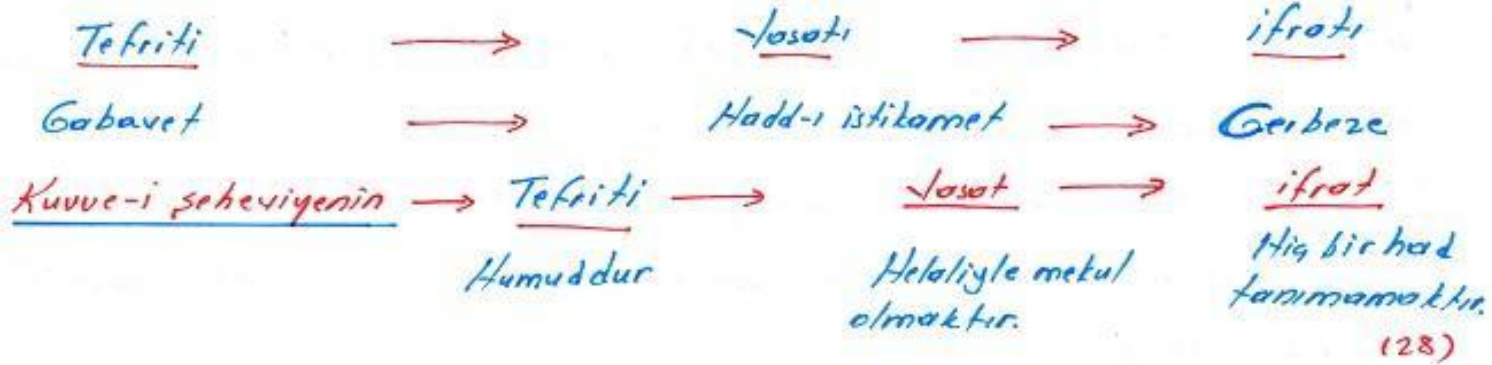 Tefriti → Vasatı → ifratı
Gabavet → Hadd-ı istikamet → Cerbeze
Kuvve-i şeheviyenin → Tefriti → Vasat → ifrat
Humuddur Helaliyle mekul olmaktır. Hiç bir had tanımamaktır.
(28)